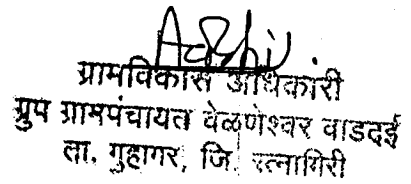 ग्रामविकास अधिकारी
ग्रुप ग्रामपंचायत वेळणेश्वर वाडदई
ता. गुहागर, जि. रत्नागिरी